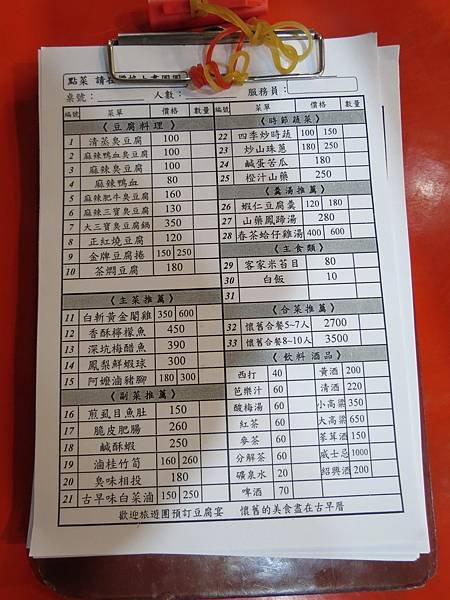 點菜 請在
桌號： 人數： 服務員：
編號 菜單 價格 數量
《豆腐料理》
1 清蒸臭豆腐 100
2 麻辣鴨血臭豆腐 100
3 麻辣臭豆腐 100
4 麻辣鴨血 80
5 麻辣肥牛臭豆腐 160
6 麻辣三寶臭豆腐 130
7 大三寶臭豆腐鍋 350
8 正紅燒豆腐 120
9 金牌豆腐捲 150 250
10 茶燜豆腐 180
《主菜推薦》
11 白斬黃金閹雞 350 600
12 香酥檸檬魚 450
13 深坑梅醋魚 390
14 鳳梨鮮蝦球 300
15 阿嬤滷豬腳 180 300
《副菜推薦》
16 煎虱目魚肚 150
17 脆皮肥腸 260
18 鹹酥蝦 250
19 滷桂竹筍 160 260
20 臭味相投 180
21 古早味白菜滷 150 250
編號 菜單 價格 數量
《時節蔬菜》
22 四季炒時蔬 100 150
23 炒山珠蔥 180 250
24 鹹蛋苦瓜 180
25 橙汁山藥 180
《羹湯推薦》
26 蝦仁豆腐羹 120 180
27 山藥鳳蹄湯 280
28 春茶蛤仔雞湯 400 600
《主食類》
29 客家米苔目 80
30 白飯 10
31
《合菜推薦》
32 懷舊合餐5~7人 2700
33 懷舊合餐8~10人 3500
《飲料 酒品》
西打 40 黃酒 200
芭樂汁 60 清酒 220
酸梅湯 60 小高粱 350
紅茶 60 大高粱 650
參茶 60 蔘茸酒 150
分解茶 60 威士忌 1000
礦泉水 20 紹興酒 200
啤酒 70
歡迎旅遊團預訂豆腐宴 懷舊的美食盡在古早厝